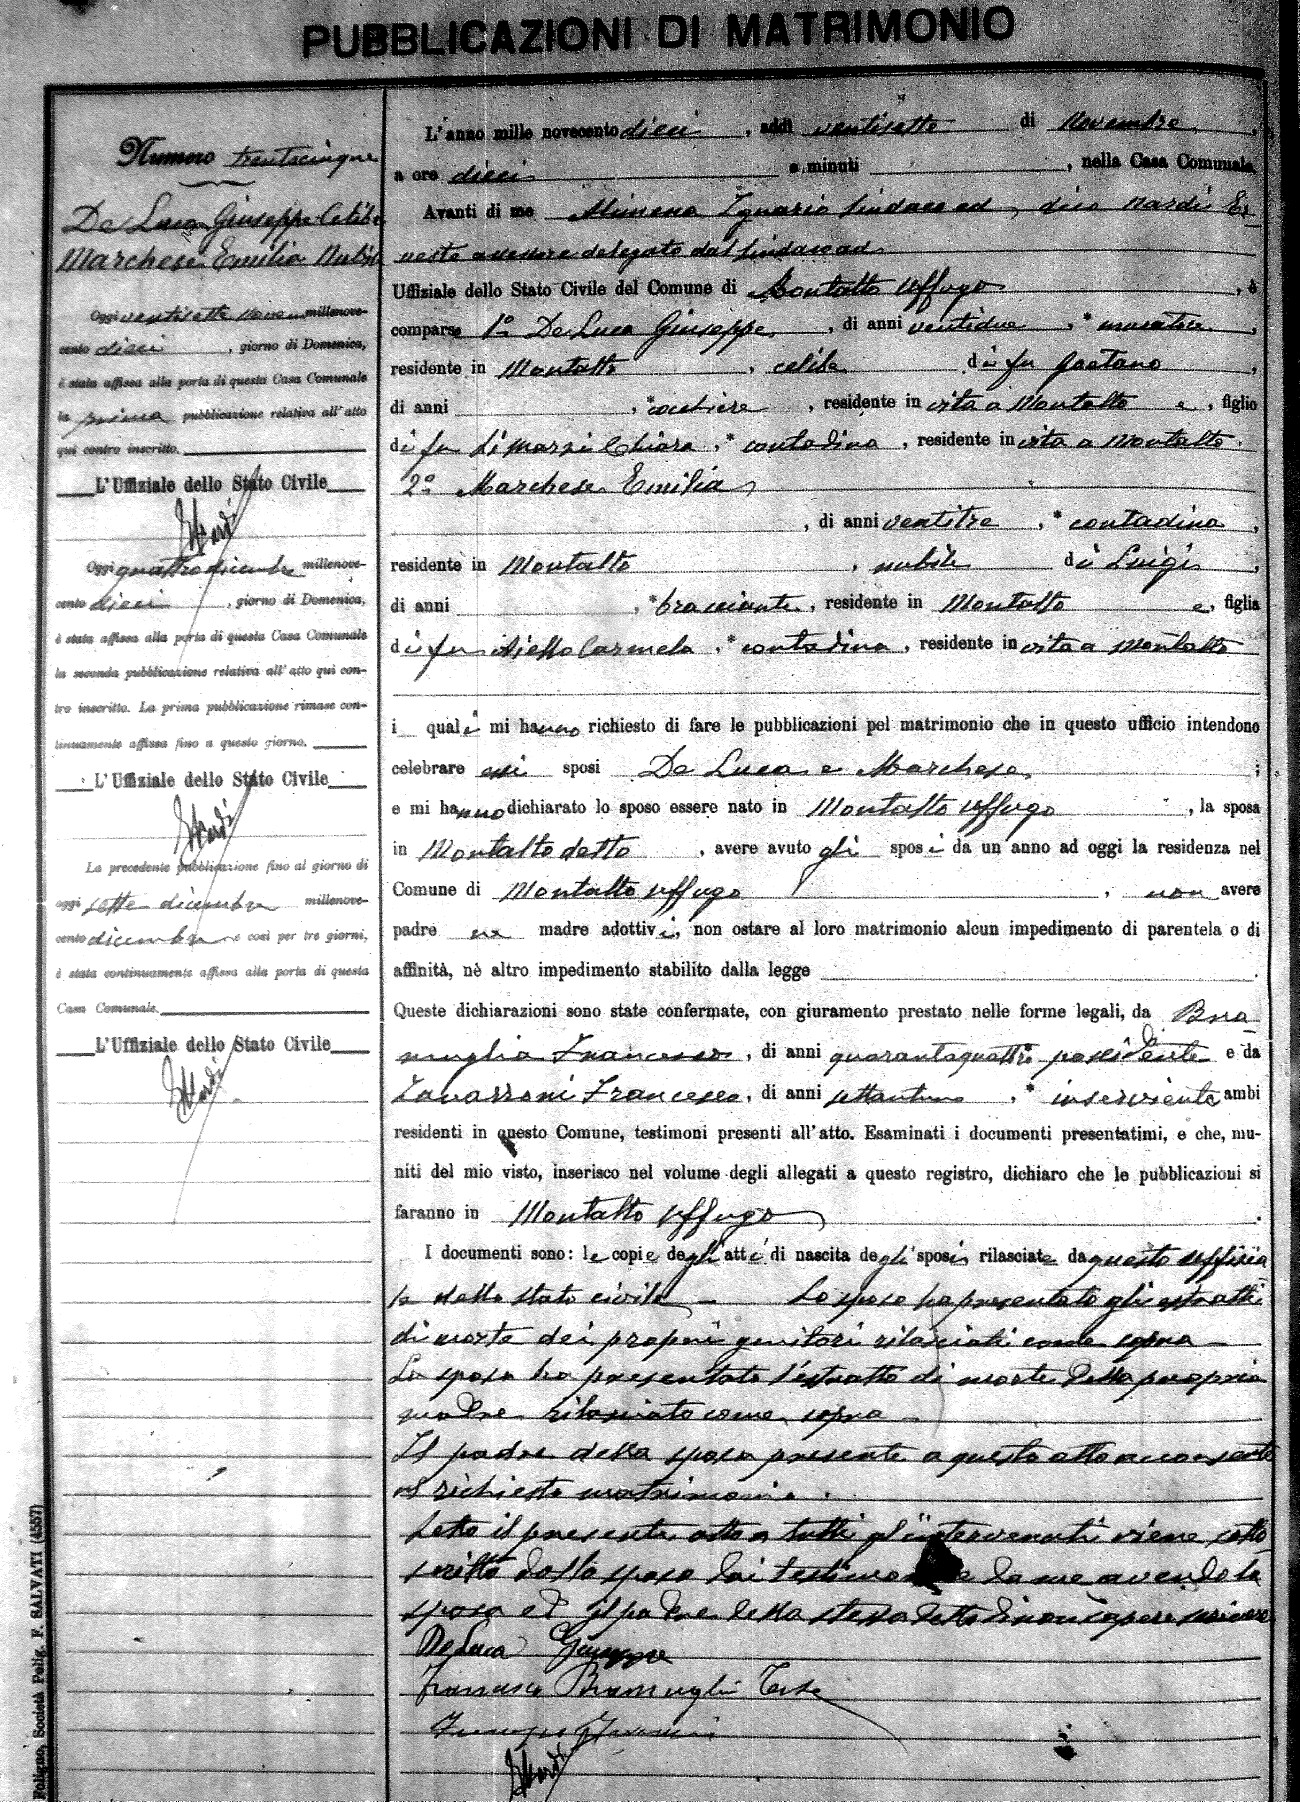 PUBBLICAZIONI DI MATRIMONIO
Numero trentacinque
De Luca Giuseppe Celibe
Marchese Emilia Nubile
Oggi ventisette novem millenove-
cento dieci, giorno di Domenica,
è stata affissa alla porta di questa Casa Comunale
la prima pubblicazione relativa all'atto
qui contro inscritto.
L'Uffiziale dello Stato Civile
Nardi
Oggi quattro dicembre millenove-
cento dieci, giorno di Domenica,
è stata affissa alla porta di questa Casa Comunale
la seconda pubblicazione relativa all'atto quì con-
tro inscritto. La prima pubblicazione rimase con-
tinuamente affissa fino a questo giorno.
L'Uffiziale dello Stato Civile
Nardi
La precedente pubblicazione fino al giorno di
oggi sette dicembre millenove-
cento dicembre e così per tre giorni,
è stata continuamente affissa alla porta di questa
Casa Comunale.
L'Uffiziale dello Stato Civile
Nardi
L'anno mille novecento dieci, addì ventisette di Novembre,
a ore dieci e minuti , nella Casa Comunale.
Avanti di me Ignazio Sindaco ed, dico Nardi Er
nesto assessore delegato dal Sindaco ad
Uffiziale dello Stato Civile del Comune di Montalto Uffugo, è
comparse 1º De Luca Giuseppe, di anni ventidue, * muratore,
residente in Montalto, celibe di fu Gaetano,
di anni , * cocchiere, residente in vita a Montalto e, figlio
di fu Di Marzi Chiara, * contadina, residente in vita a Montalto.
2º Marchese Emilia
, di anni ventitre, * contadina,
residente in Montalto, nubile di Luigi,
di anni , * bracciante, residente in Montalto e, figlia
di fu Aiello Carmela, * contadina, residente in vita a Montalto
i quali mi hanno richiesto di fare le pubblicazioni pel matrimonio che in questo ufficio intendono
celebrare essi sposi De Luca e Marchese;
e mi hanno dichiarato lo sposo essere nato in Montalto Uffugo, la sposa
in Montalto detto, avere avuto gli sposi da un anno ad oggi la residenza nel
Comune di Montalto Uffugo, non avere
padre ne madre adottivi, non ostare al loro matrimonio alcun impedimento di parentela o di
affinità, nè altro impedimento stabilito dalla legge.
Queste dichiarazioni sono state confermate, con giuramento prestato nelle forme legali, da Bra
muglia Francesco, di anni quarantaquattro possidente e da
Zavarroni Francesco, di anni settantuno, * inserviente ambi
residenti in questo Comune, testimoni presenti all'atto. Esaminati i documenti presentatimi, e che, mu-
niti del mio visto, inserisco nel volume degli allegati a questo registro, dichiaro che le pubblicazioni si
faranno in Montalto Uffugo.
I documenti sono: le copie degli atti di nascita degli sposi rilasciate da questo Uffizia
le dello stato civile Lo sposo ha presentato gli estratti
di morte dei propri genitori rilasciati come sopra
La sposa ha presentato l'estratto di morte della propria
madre rilasciato come sopra
Il padre della sposa presente a questo atto acconsente
al richiesto matrimonio.
Letto il presente atto a tutti gl'intervenuti viene sotto
scritto dallo sposo dai testimoni e da me avendo la
sposa ed il padre della stessa detto di non sapere scrivere
De Luca Giuseppe
Francesco Bramuglia Teste
Nardi
Foligno, Società Polig. F. SALVATI (4557)